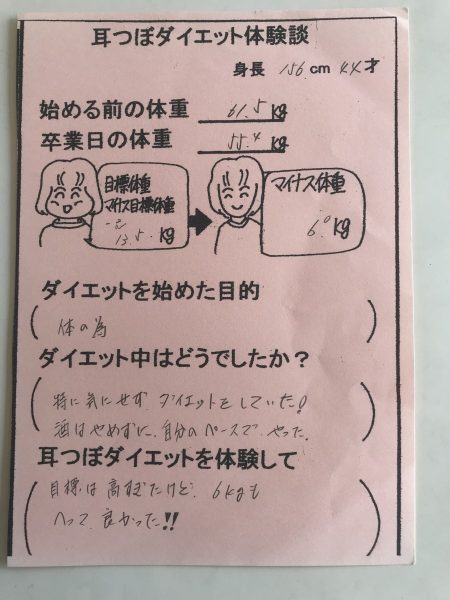 耳つぼダイエット体験談
身長 156 cm 44才
始める前の体重 61.5 kg
卒業日の体重 55.4 kg
目標体重
マイナス目標体重
13.5 kg
マイナス体重
6.0 kg
ダイエットを始めた目的
体の為
ダイエット中はどうでしたか?
特に気にせず ダイエットをしていた!
酒はやめずに、自分のペースで やった。
耳つぼダイエットを体験して
目標は高すぎたけど、6kgも
へって 良かった!!